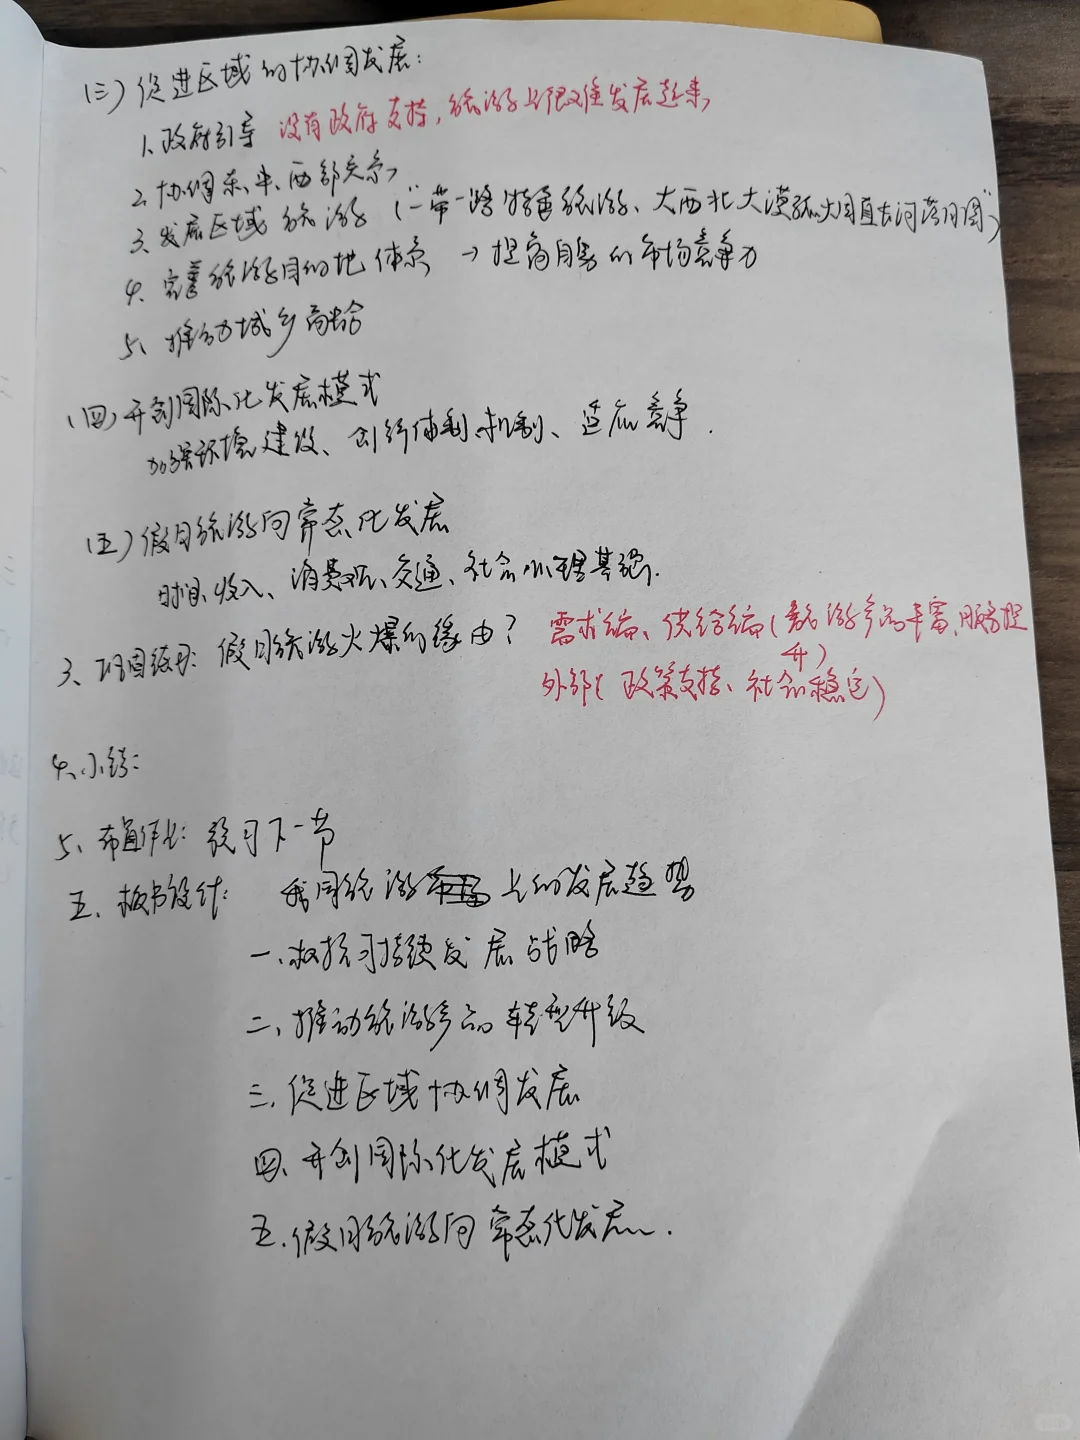 (三)促进区域的协调发展:
1、政府引导 没有政府支持,旅游上很难发展起来,
2、协调东、中、西部关系,
3、发展区域旅游("一带一路"特色旅游、大西北大漠孤烟直长河落日圆")
4、完善旅游目的地体系 → 提高自身的市场竞争力
5、推动城乡结合
(四)开创国际化发展模式
加强环境建设、创新体制机制、适应竞争.
(五)假日旅游向常态化发展
时间、收入、消费观、交通、社会心理基础.
3、巩固练习:假日旅游火爆的缘由? 需求端、供给端(旅游产品丰富、服务提升)
外部(政策支持、社会稳定)
4、小结:
5、布置作业:预习下一节
五、板书设计: 我国旅游业的发展趋势
一、可持续发展战略
二、推动旅游产品转型升级
三、促进区域协调发展
四、开创国际化发展模式
五、假日旅游向常态化发展.